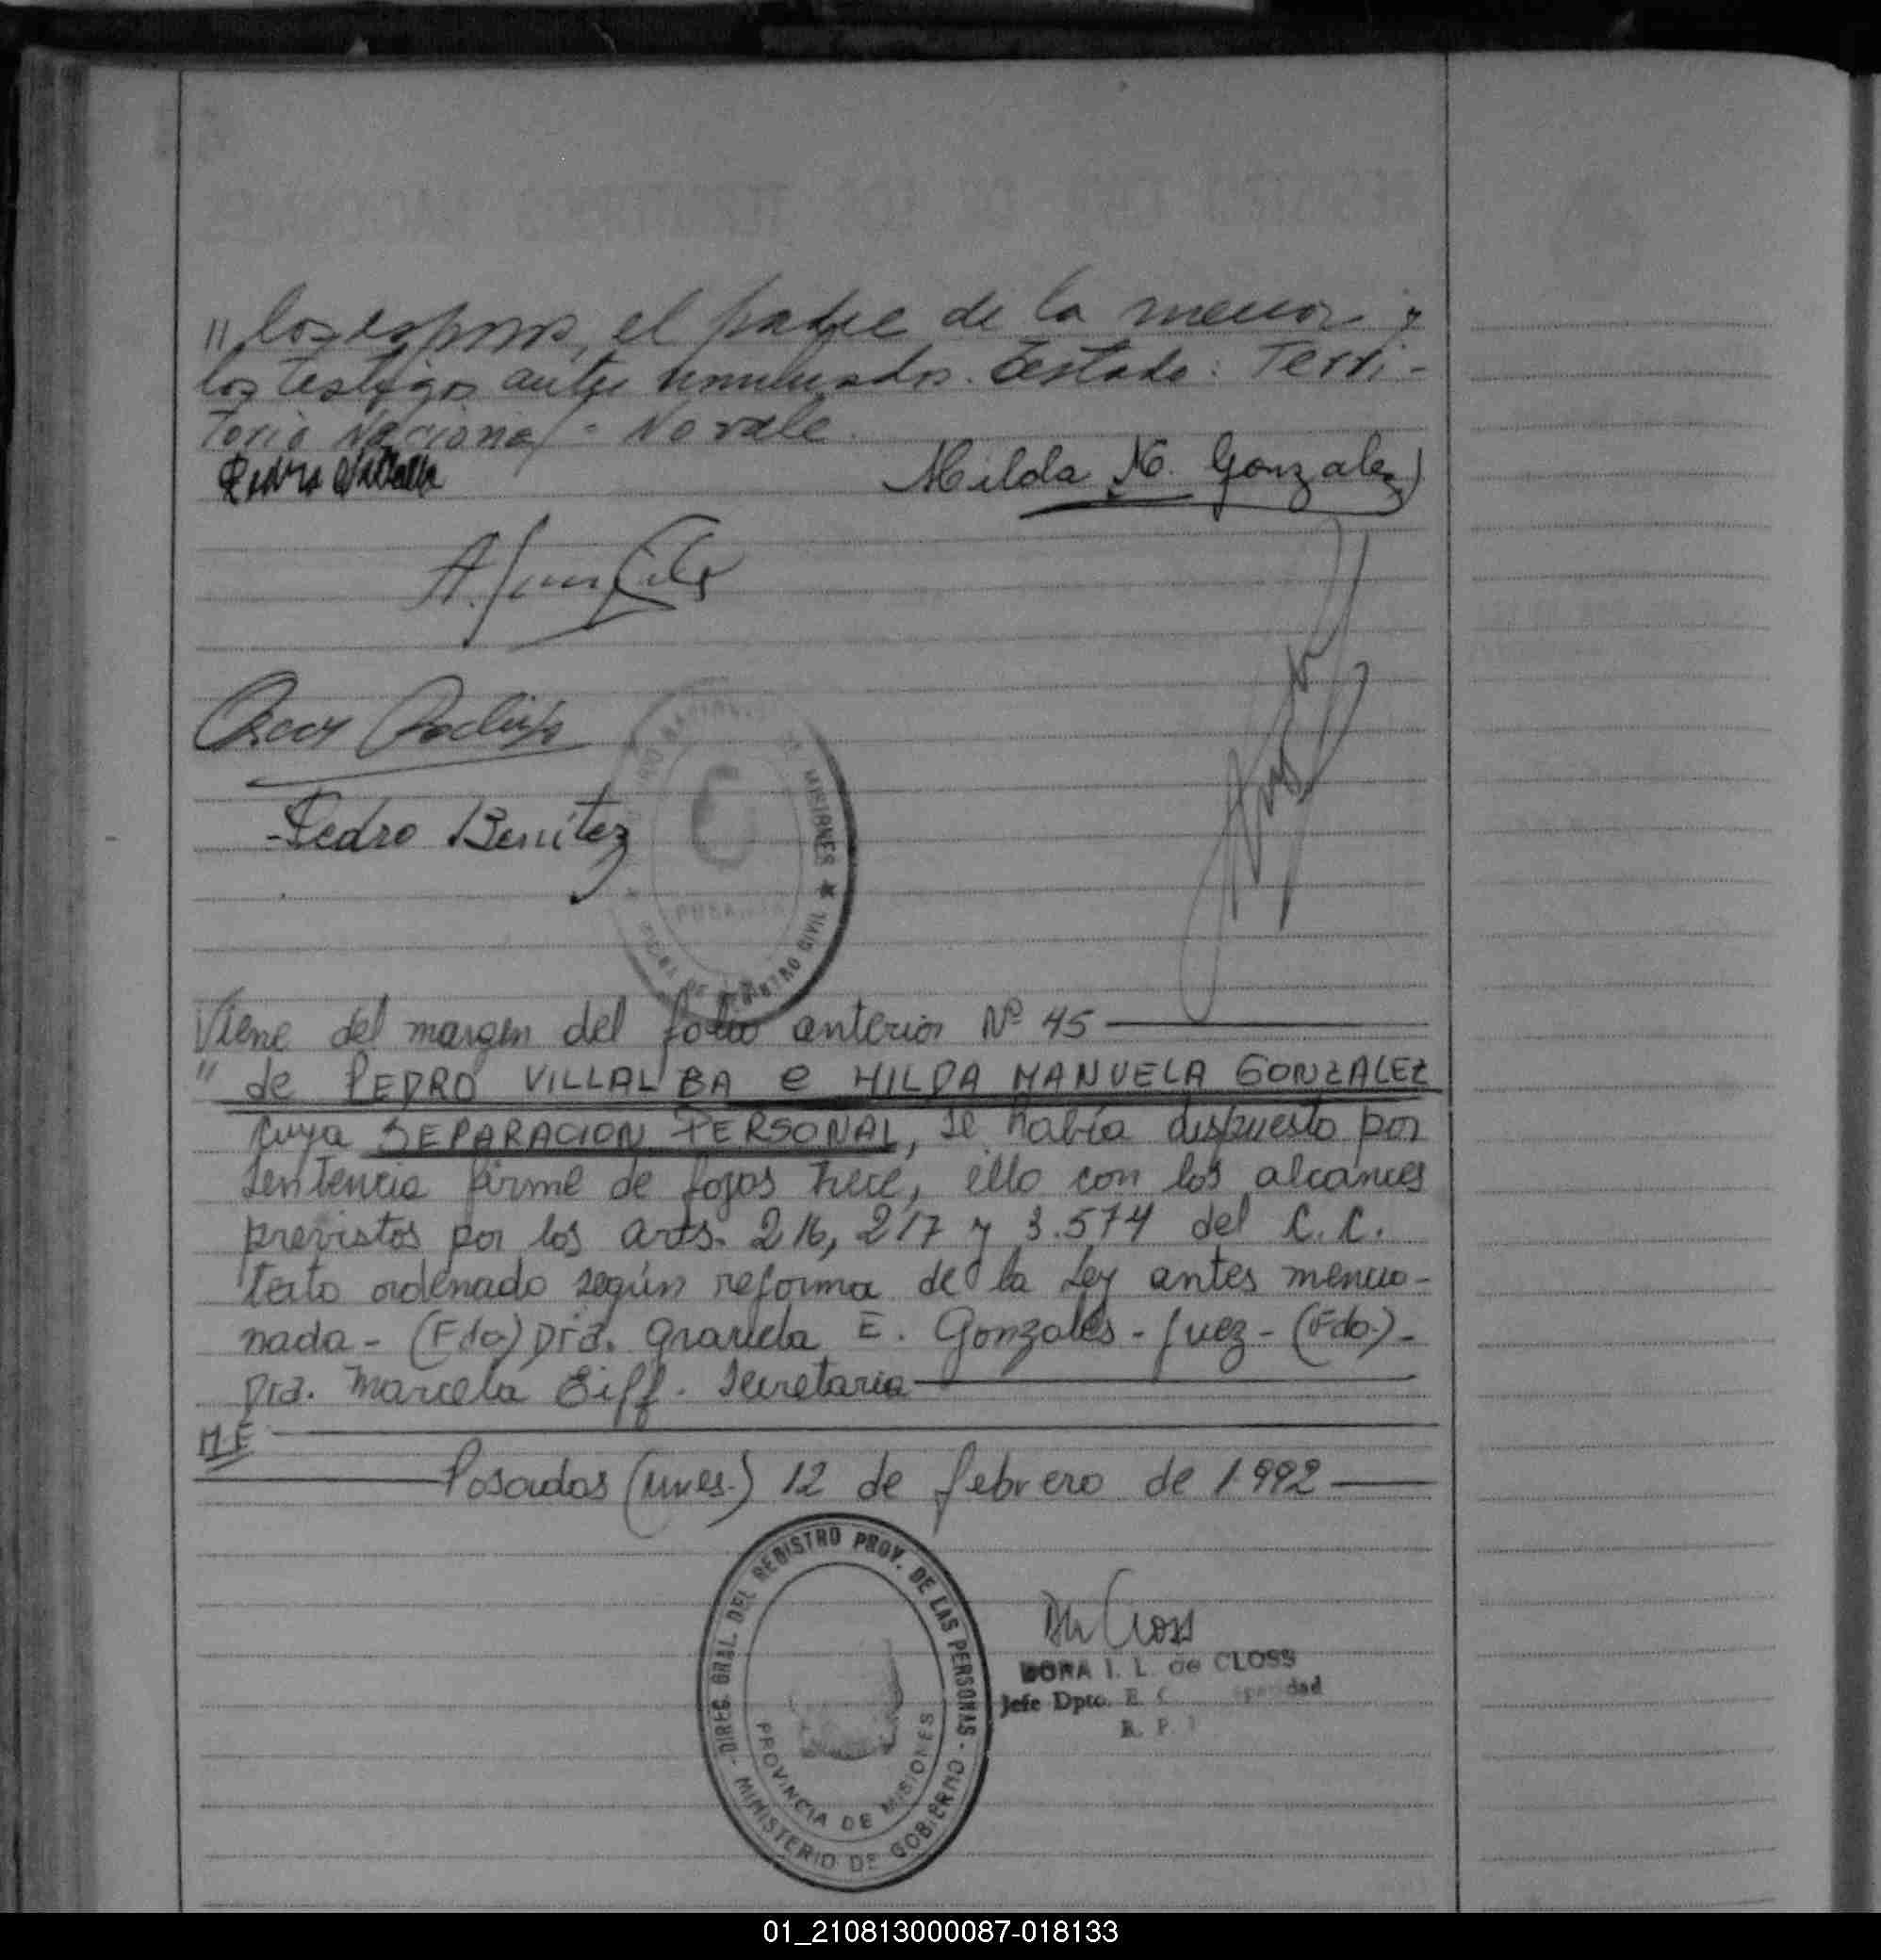 // los esposos, el padre de la menor y
los testigos antes nombrados. Testado: Terri-
torio Nacional - No vale.
Pedro Villalba
Hilda M. Gonzalez
Pedro Benitez
MISIONES ★ REGISTRO CIVIL
Viene del margen del folio anterior Nº 45
" de PEDRO VILLALBA e HILDA MANUELA GONZALEZ
cuya SEPARACION PERSONAL, se había dispuesto por
sentencia firme de fojas trece, ello con los alcances
previstos por los arts. 216, 217 y 3.574 del C.C.
texto ordenado según reforma de la Ley antes mencio-
nada - (Fdo) Dra. Graciela E. Gonzales - Juez - (Fdo.) -
Dra. Marcela Eiff. Secretaria
ME
Posadas (Mnes.) 12 de febrero de 1992
DIREC. GRAL. DEL REGISTRO PROV. DE LAS PERSONAS - MINISTERIO DE GOBIERNO -
PROVINCIA DE MISIONES
DORA I. L. de CLOSS
Jefe Dpto. E. C.
R. P.
01_210813000087-018133